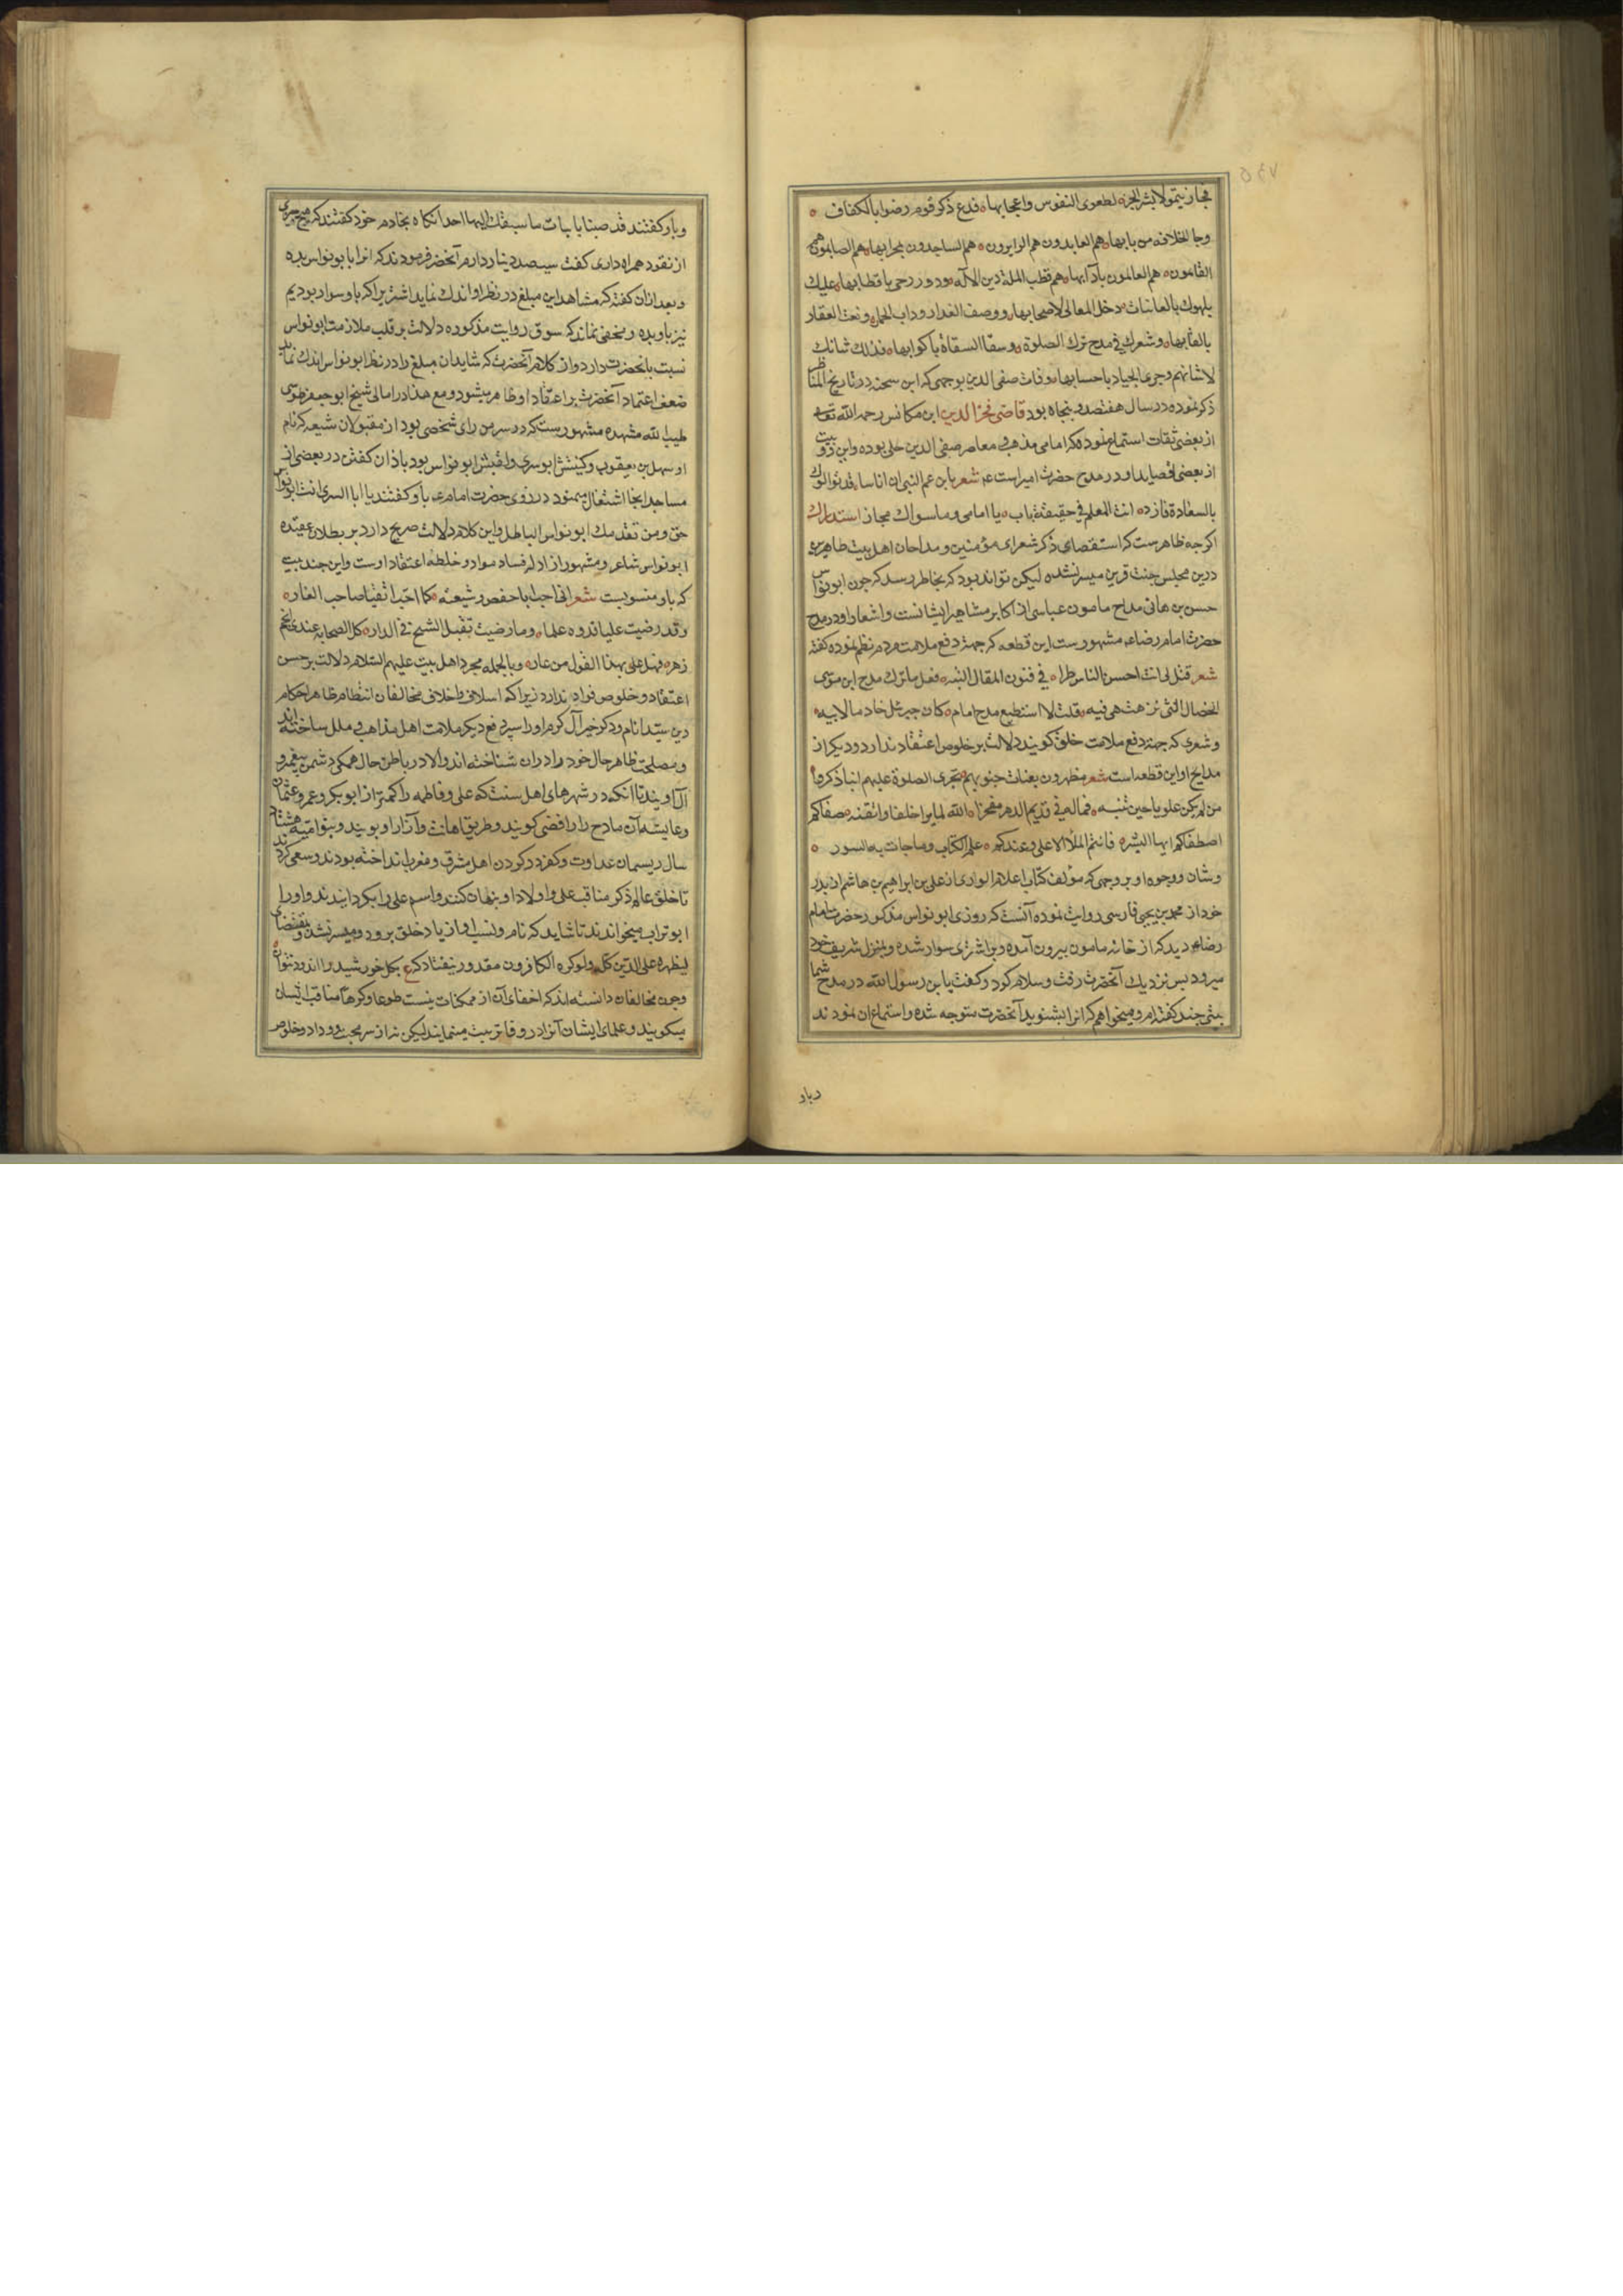 وجا الخلافه من بابها هم العابدون هم الزابرون هم الساجدون بمحرابها هم الصايمون هم
القايمون هم العالمون بآدابها هم قطب الملة دين الاله ودور رحى باقطابها عليك
بلهوك بالغانيات وخل المعالى لاصحابها ووصف العذار وذات الخمار ونعت العقار
بالقابها وشعرك في مدح ترك الصلوة وسقا السقاة باكوابها فذلك شانك
لا شانهم وجرى الجياد باحسابها وفات صفى الدين بوجهى كه ابن شحنه در تاريخ المناظر
ذكر نموده در سال هفتصد و پنجاه بود قاضى فخر الدين ابن مكانس رحمه الله تعالى
از بعضى ثقات استماع نموده كه امامى مذهب و معاصر صفى الدين حلى بوده و اين دو بيت
از بعضى قصايد او در مدح حضرت امير است عم شعر يا بن عم النبى ان اناسا قد توالوك
بالسعادة فازوا انت للعلم في حقيقة باب يا امامى وما سواك مجاز استدراك
اكرچه ظاهرست كه استقصاى ذكر شعراى مؤمنين و مداحان اهل بيت طاهرين
درين مجلس جنت قرين ميسر نشده ليكن تواند بود كه بخاطر رسد كه چون ابو نواس
حسن بن هانى مداح مامون عباسى از اكابر مشاهير ايشانست و اشعار او در مدح
حضرت امام رضا عم مشهورست اين قطعه كه جهة دفع ملامت مردم نظم نموده كفته
شعر قيل لى انت احسن الناس طرا في فنون المقال النبيه فعل ما ترك مدح ابن موسى
الخصال التى تنزهت هى فيه قلت لا استطيع مدح امام كان جبرئل خادما لابيه
و شعرى كه جهة دفع ملامت خلق كويند دلالت بر خلوص اعتقاد ندارد و ديكر از
مدايح او اين قطعه است شعر مطهرون نقيات جنوبهم تجرى الصلوة عليهم اينما ذكروا
من لم يكن علويا حين تنسبه فماله في قديم الدهر مفتخر الله لما برا خلقا واتقنه صفاكم
اصطفاكم ايها البشر فانتم الملأ الاعلى وعندكم علم الكتاب وما جات به السور
و شان و وجوه او بر وجهى كه مؤلف كتاب اعلام الورى از على بن ابراهيم بن هاشم از پدر
خود از محمد بن يحيى فارسى روايت نموده آنست كه روزى ابو نواس مذكور حضرت امام
رضا عم ديد كه از خانه مامون بيرون آمده و بر اشترى سوار شده و بمنزل شريف خود
ميرود پس نزديك آنحضرت رفت و سلام كرد و كفت يا بن رسول الله در مدح شما
بيتى چند كفته ام و ميخواهم كه انرا بشنويد آنحضرت متوجه شده و استماع ان نمودند
وباو
وباو كفتند قد جئتنا بابيات ما سبقك اليها احد انكاه بخادم خود كفتند كه هيچ چيزى
از نقود همراه دارى كفت سيصد دينار دارم آنحضرت فرمودند كه انرا بابو نواس بده
و بعد از ان كفته كه مشاهد اين مبلغ در نظر او اندك نمايد اشتر يرا كه باو سوار بوديم
نيز باو بده و مخفى نماند كه سوق روايت مذكوره دلالت بر قلب ملازمت ابو نواس
نسبت بانحضرت دارد و از كلام آنحضرت كه شايد ان مبلغ را در نظر ابو نواس اندك نمايد
ضعف اعتماد آنحضرت بر اعتقاد او ظاهر ميشود و مع هذا در امالى شيخ ابو جعفر طوسى
طيب الله مشهده مشهورست كه در سر من راى شخصى بود از مقبولان شيعه كه نام
او سهل بن يعقوب و كنيتش ابو سرى و لقبش ابو نواس بود باذان كفتن در بعضى از
مساجد انجا اشتغال مينمود در روزى حضرت امام عم باو كفتند يا ابا السرى انت ابو نواس
حق ومن تقدمك ابو نواس الباطل و اين كلام دلالت صريح دارد بر بطلان عقيده
ابو نواس شاعر و مشهور از ادله فساد مواد و خلطه اعتقاد اوست و اين چند بيت
كه باو منسوبست شعر انى احب ابا حفص وشيعته كما احب اتقيا صاحب الغار
وقد رضيت عليا قدوة علما وما رضيت بقتل الشيخ في الدار كل الصحابه عندى انجم
زهر فهل على بهذا القول من عار و بالجمله مجرد اهل بيت عليهم السلام دلالت بر حسن
اعتقاد و خلوص فواد ندارد زيرا كه اسلاف و اخلاف مخالفان انتظام ظاهر احكام
دين سيد انام و ذكر خير آل كرام او را سپر دفع ديكر ملامت اهل مذاهب و ملل ساخته اند
و مصلحت ظاهر حال خود را دران شناخته اند و الا در باطن حال همكى دشمن پيغمبر و
آل اويند تا آنكه در شهرهاى اهل سنت كه على و فاطمه را كمتر از ابو بكر و عمر و عثمان
و عايشه آن مادح را رافضى كويند و طريق اهانت و آزار او پويند و بنو اميه هشتاد
سال ريسمان عداوت و كفر در كردن اهل مشرق و مغرب انداخته بودند و سعى كردند
تا خلق عالم ذكر مناقب على و اولاد او پنهان كنند و اسم على را بكردانيدند و او را
ابو تراب ميخواندند تا شايد كه نام و نسب او از ياد خلق برود و ميسر نشد و بمقتضاى
ليظهره على الدين كله ولو كره الكافرون مقدور نيفتاد كه ع بكل خورشيد را اندود نتوان
و چون مخالفان دانسته اند كه اخفاى آن از ممكنات نيست طوعا و كرها مناقب ايشان
ميكويند و علماى ايشان آنرا در وفا تربيت مينمايند ليكن نه از سر محبت و وداد و خلوص